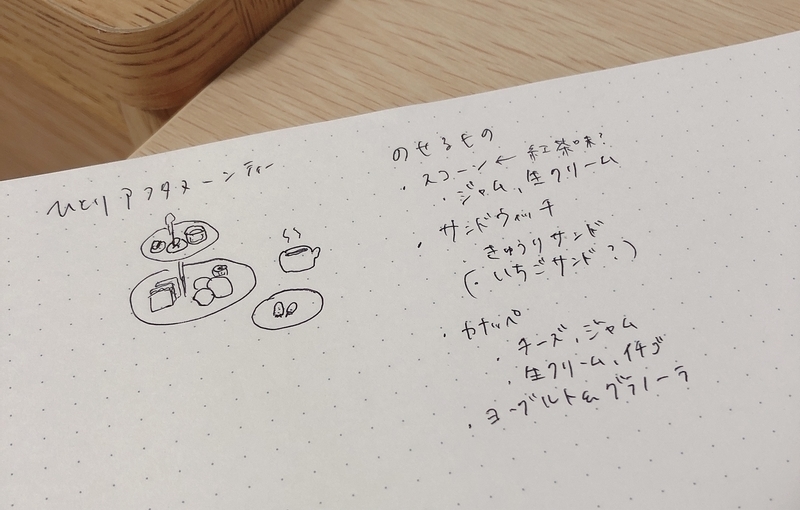 ひとりアフタヌーンティー
のせるもの
・スコーン ← 紅茶味?
・ジャム、生クリーム
・サンドウィッチ
・きゅうりサンド
(・いちごサンド?)
・カナッペ
・チーズ、ジャム
・生クリーム、イチゴ
・ヨーグルト&グラノーラ